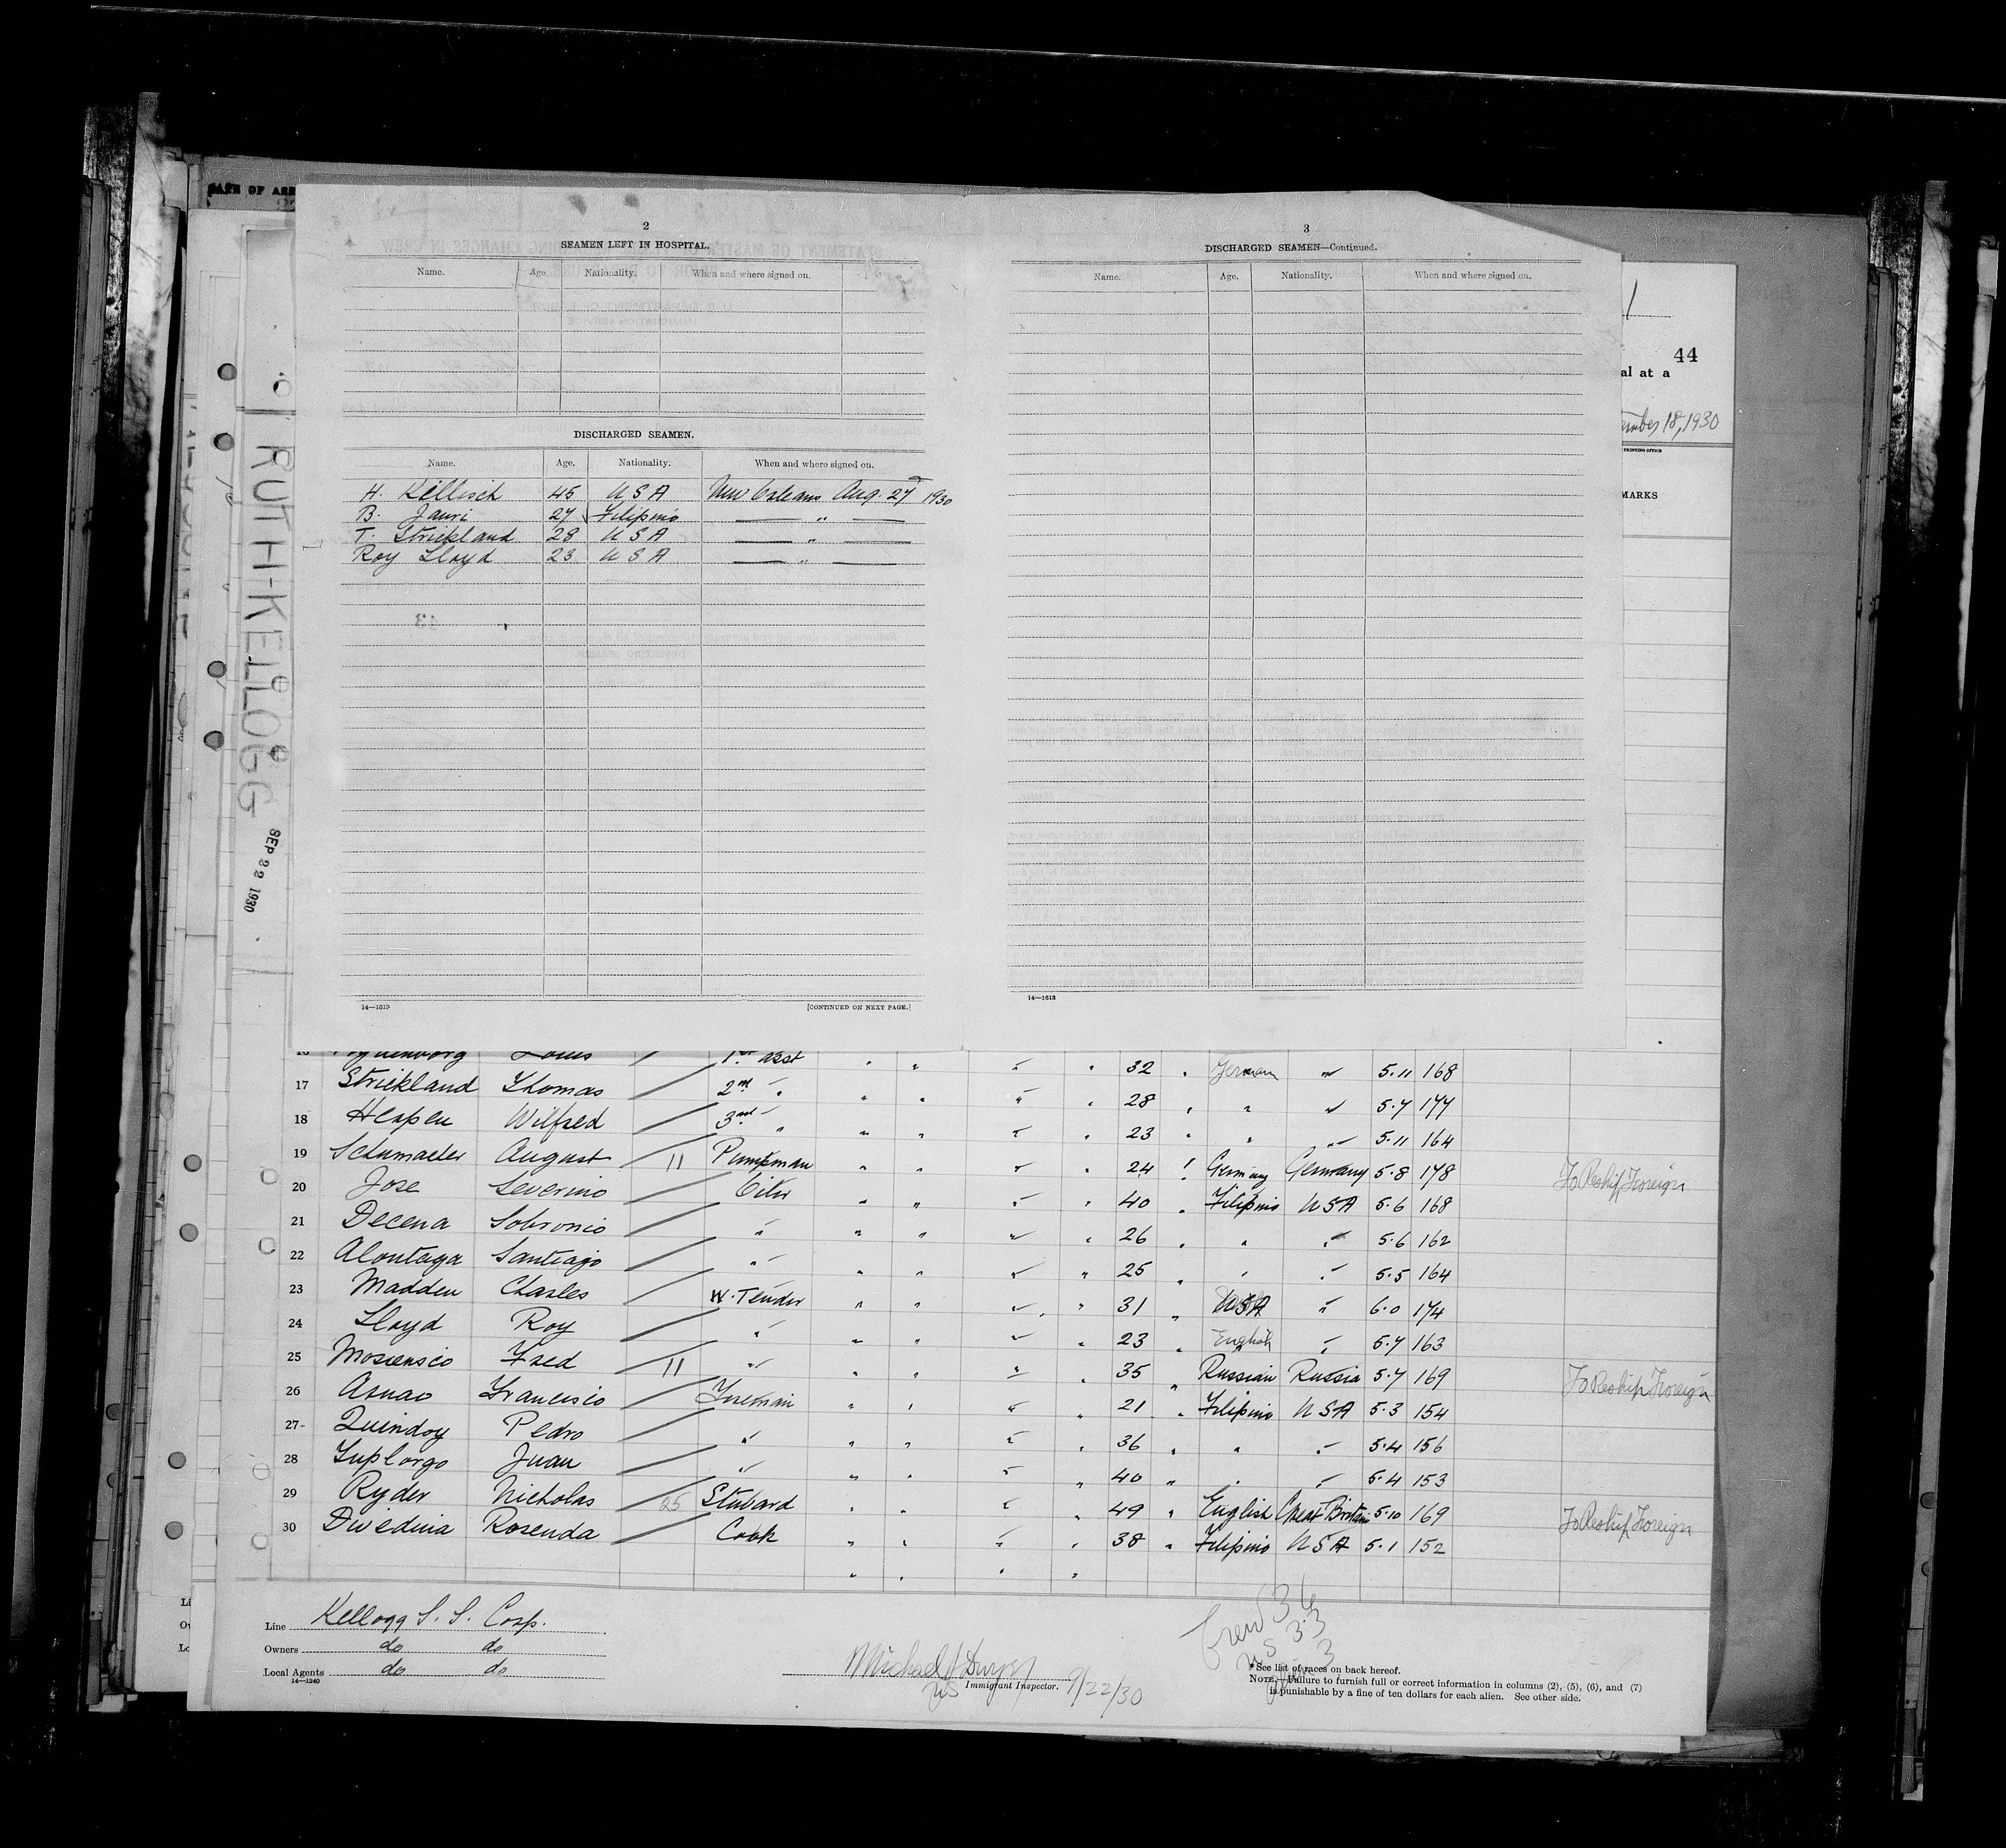 DATE OF ARR
2
SEAMEN LEFT IN HOSPITAL.
Name. Age. Nationality. When and where signed on.
DISCHARGED SEAMEN.
Name. Age. Nationality. When and where signed on.
H. Killisch 45 U S A New Orleans Aug. 27 1930
B. Jauri 27 Filipino — " —
T. Strickland 28 U S A — " —
Roy Lloyd 23 U S A — " —
43
14—1613
[CONTINUED ON NEXT PAGE.]
3
DISCHARGED SEAMEN—Continued.
Name. Age. Nationality. When and where signed on.
14—1613
44
al at a
18, 1930
PRINTING OFFICE
MARKS
RUTH-KELLOGG
SEP 22 1930
16 Louis / 1st asst " " " " 32 " German " 5.11 168
17 Strickland Thomas / 2nd " " " " " 28 " " " 5.7 177
18 Hespen Wilfred / 3rd " " " " " 23 " " " 5.11 164
19 Schumacher August / 11 Pumpman " " " " 24 " Germany Germany 5.8 178 To Reship Foreign
20 Jose Severino / Oiler " " " " 40 " Filipino U S A 5.6 168
21 Decena Sobronio / " " " " " 26 " " " 5.6 162
22 Alontaga Santiago / " " " " " 25 " " " 5.5 164
23 Madden Charles / W. Tender " " " " 31 " U S A " 6.0 174
24 Lloyd Roy / " " " " " 23 " English " 5.7 163
25 Mosiensco Fred / 11 " " " " " 35 " Russian Russia 5.7 169 To Reship Foreign
26 Asnao Francisco / Fireman " " " " 21 " Filipino U S A 5.3 154
27 Quindoy Pedro / " " " " " 36 " " " 5.4 156
28 Suplorgo Juan / " " " " " 40 " " " 5.4 153
29 Ryder Nicholas / 25 Stubard " " " " 49 " English Great Britain 5.10 169 To Reship Foreign
30 Diviedinia Rosenda / Cook " " " " 38 " Filipino U S A 5.1 152
Line Kellogg S. S. Corp.
Owners do do
Local Agents do do
14—1240
Michael J Dwyer
Immigrant Inspector. 9/22/30
Crew 36
US 33
3
* See list of races on back hereof.
NOTE.—Failure to furnish full or correct information in columns (2), (5), (6), and (7)
is punishable by a fine of ten dollars for each alien. See other side.